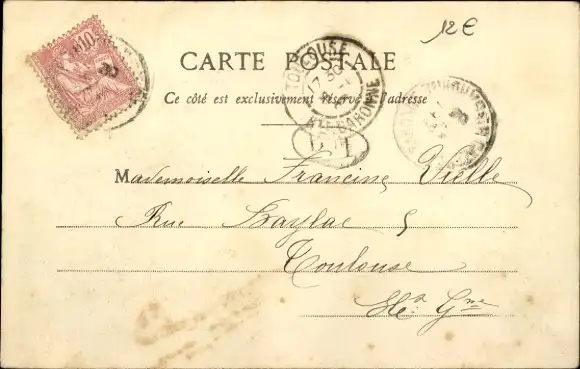 12€
10
TOULOUSE
Hte GARONNE
CARTE POSTALE
Ce côté est exclusivement réservé à l'adresse
Mademoiselle Francine Vielle
Rue Baylac 5
Toulouse
Hte Gne